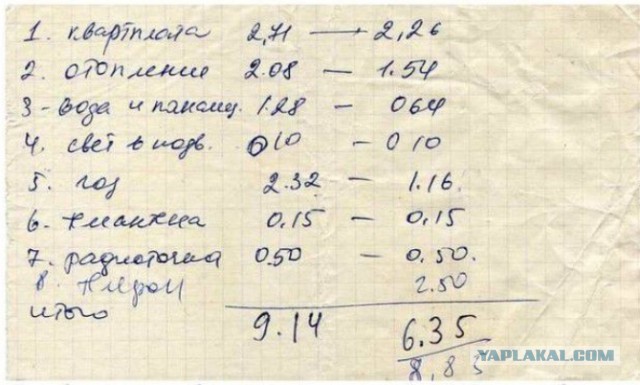 1. квартплата 2,71 → 2,26
2. отопление 2.08 — 1.54
3 - вода и канализ. 1.28 - 064
4. свет в подв. 010 - 010
5. газ 2.32 — 1.16.
6. 0,15 — 0,15
7. радиоточка 0.50 — 0.50.
8. 2.50
итого 9.14 6.35
8,85
YAPLAKAL.COM